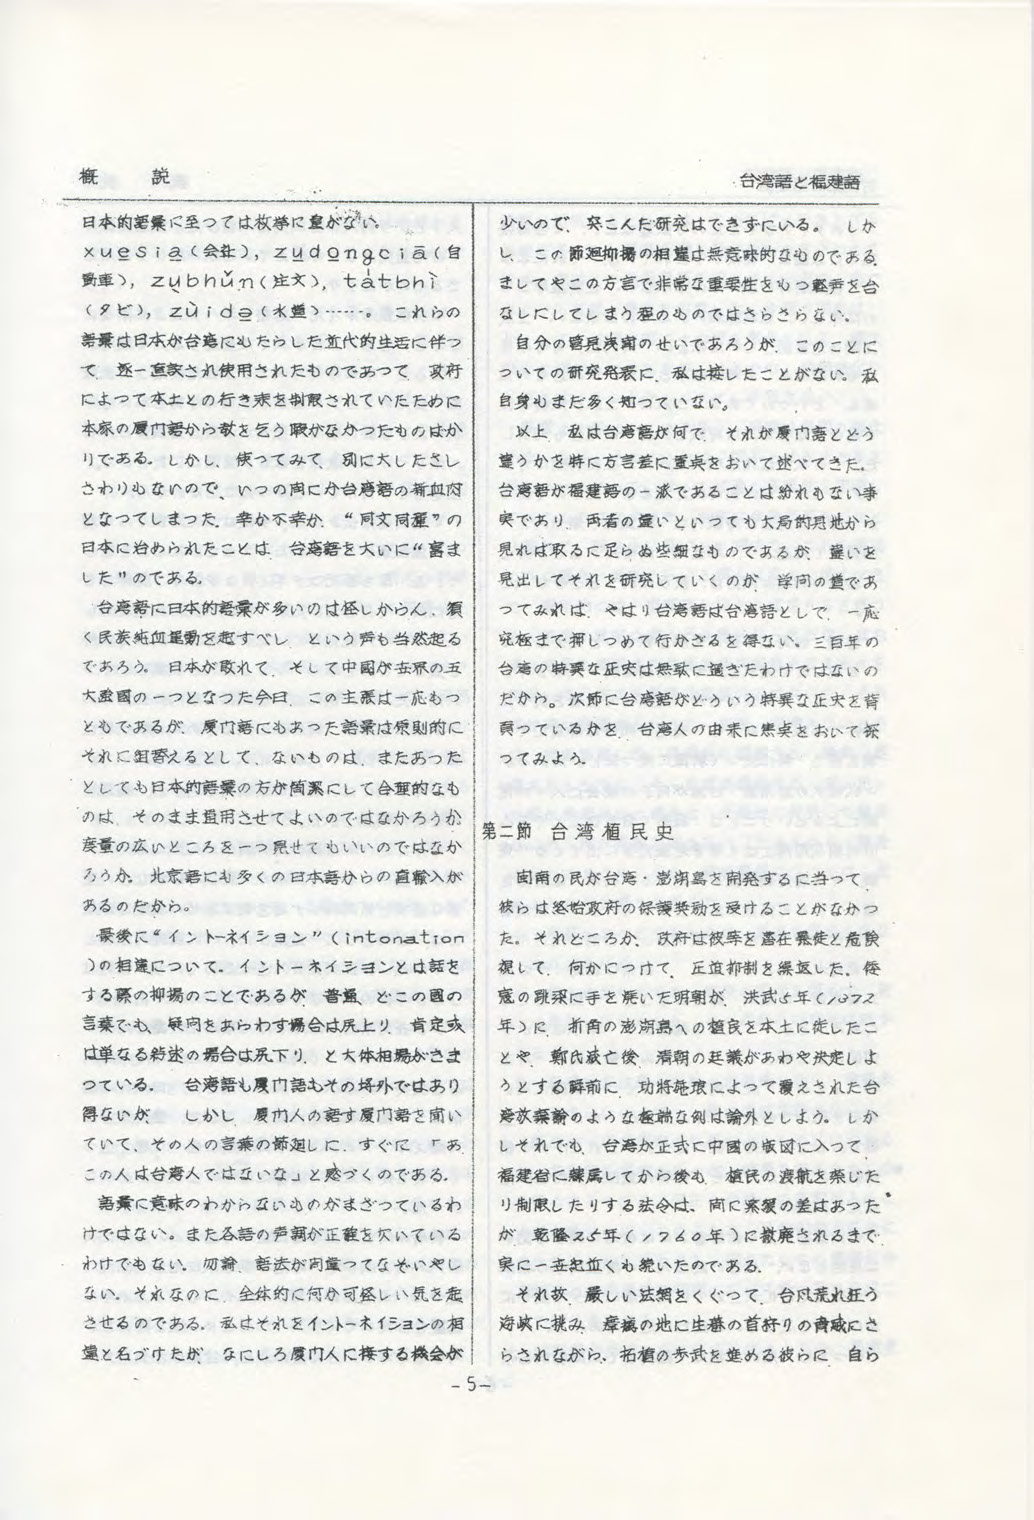 概　説
台湾語と福建語
日本的語彙に至つては枚挙に遑がない。
xuesia(会社), zudongcia(自
動車), zubhun(注文), tátbhì
(タビ), zùide(水道)……。これらの
語彙は日本が台湾にもたらした近代的生活に伴つ
て、逐一直訳され使用されたものであつて、政府
によつて本土との行き来を制限されていたために
本家の廈门語から教を乞う暇がなかつたものばか
りである。しかし、使つてみて、別に大したさし
さわりもないので、いつの间にか台湾語の新血肉
となつてしまつた。幸か不幸か、“同文同種”の
日本に治められたことは、台湾語を大いに“富ま
した”のである。
台湾語に日本的語彙が多いのは怪しからん、須
く民族純血運動を起すべし、という声も当然起る
であろう。日本が敗れて、そして中國が世界の五
大强國の一つとなつた今日、この主張は一応もつ
ともであるが、廈门語にもあった語彙は原則的に
それに組替えるとして、ないものは、またあつた
としても日本的語彙の方が简潔にして合理的なも
のは、そのまま通用させてよいのではなかろうか
度量の広いところを一つ見せてもいいのではなか
ろうか。北京語にも多くの日本語からの直輸入が
あるのだから。
最後に“イントーネイション”(intonation
)の相違について。イントーネイションとは話を
する際の抑揚のことであるが、普通、どこの國の
言葉でも、疑问をあらわす場合は尻上り、肯定或
は単なる叙述の場合は尻下り、と大体相場がきま
つている。 台湾語も廈门語もその埒外ではあり
得ないが、 しかし、廈门人の話す廈门語を聞い
ていて、その人の言葉の節廻しに、すぐに、「あ
この人は台湾人ではないな」と感づくのである。
語彙に意味のわからないものがまざつているわ
けではない。また各語の声調が正確を欠いている
わけでもない。勿論、語法が间違つてなぞいやし
ない。それなのに、全体的に何か可怪しい気を起
させるのである。私はそれをイントーネイションの相
違と名づけたが、なにしろ廈门人に接する機会が
少いので、突こんだ研究はできずにいる。しか
し、この節廻抑揚の相違は無意味的なものである
ましてやこの方言で非常な重要性をもつ軽声を台
なしにしてしまう程のものではさらさらない。
自分の管見浅聞のせいであろうが、このことに
ついての研究発表に、私は接したことがない。私
自身もまだ多く知つていない。
以上、私は台湾語が何で、それが廈门語とどう
違うかを特に方言差に重点をおいて述べてきた。
台湾語が福建語の一派であることは紛れもない事
実であり、両者の違いといつても大局的見地から
見れば取るに足らぬ些細なものであるが、違いを
見出してそれを研究していくのが、学问の道であ
つてみれば、やはり台湾語は台湾語として、一応
究極まで押しつめて行かざるを得ない。三百年の
台湾の特異な歴史は無駄に過ぎたわけではないの
だから。次節に台湾語がどういう特異な歴史を背
負つているかを、台湾人の由来に焦点をおいて探
つてみよう。
第二節　台湾植民史
閩南の民が台湾・澎湖島を開発するに当つて、
彼らは終始政府の保護奬励を受けることがなかつ
た。それどころか、政府は彼等を潜在暴徒と危険
視して、何かにつけて、圧迫抑制を繰返した。倭
寇の跳梁に手を焼いた明朝が、洪武5年(1372
年)に、折角の澎湖島への植民を本土に徙したこ
とや、鄭氏滅亡後、清朝の廷議があわや決定しよ
うとする瞬前に、功将施琅によつて覆えされた台
湾放棄論のような極端な例は論外としよう。しか
しそれでも、台湾が正式に中國の版図に入つて、
福建省に隷属してから後も、植民の渡航を禁じた
り制限したりする法令は、间に緊緩の差はあつた
が、乾隆25年(1760年)に撤廃されるまで
実に一世紀近くも続いたのである。
それ故、厳しい法網をくぐつて、台风荒れ狂う
海峡に挑み、瘴癘の地に生蕃の首狩りの脅威にさ
らされながら、拓植の歩武を進める彼らに、自ら
-5-